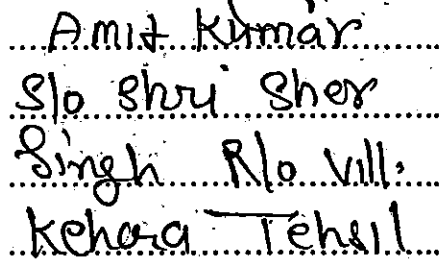 Amit Kumar
S/o Shri Sher
Singh R/o Vill.
Kehara Tehsil